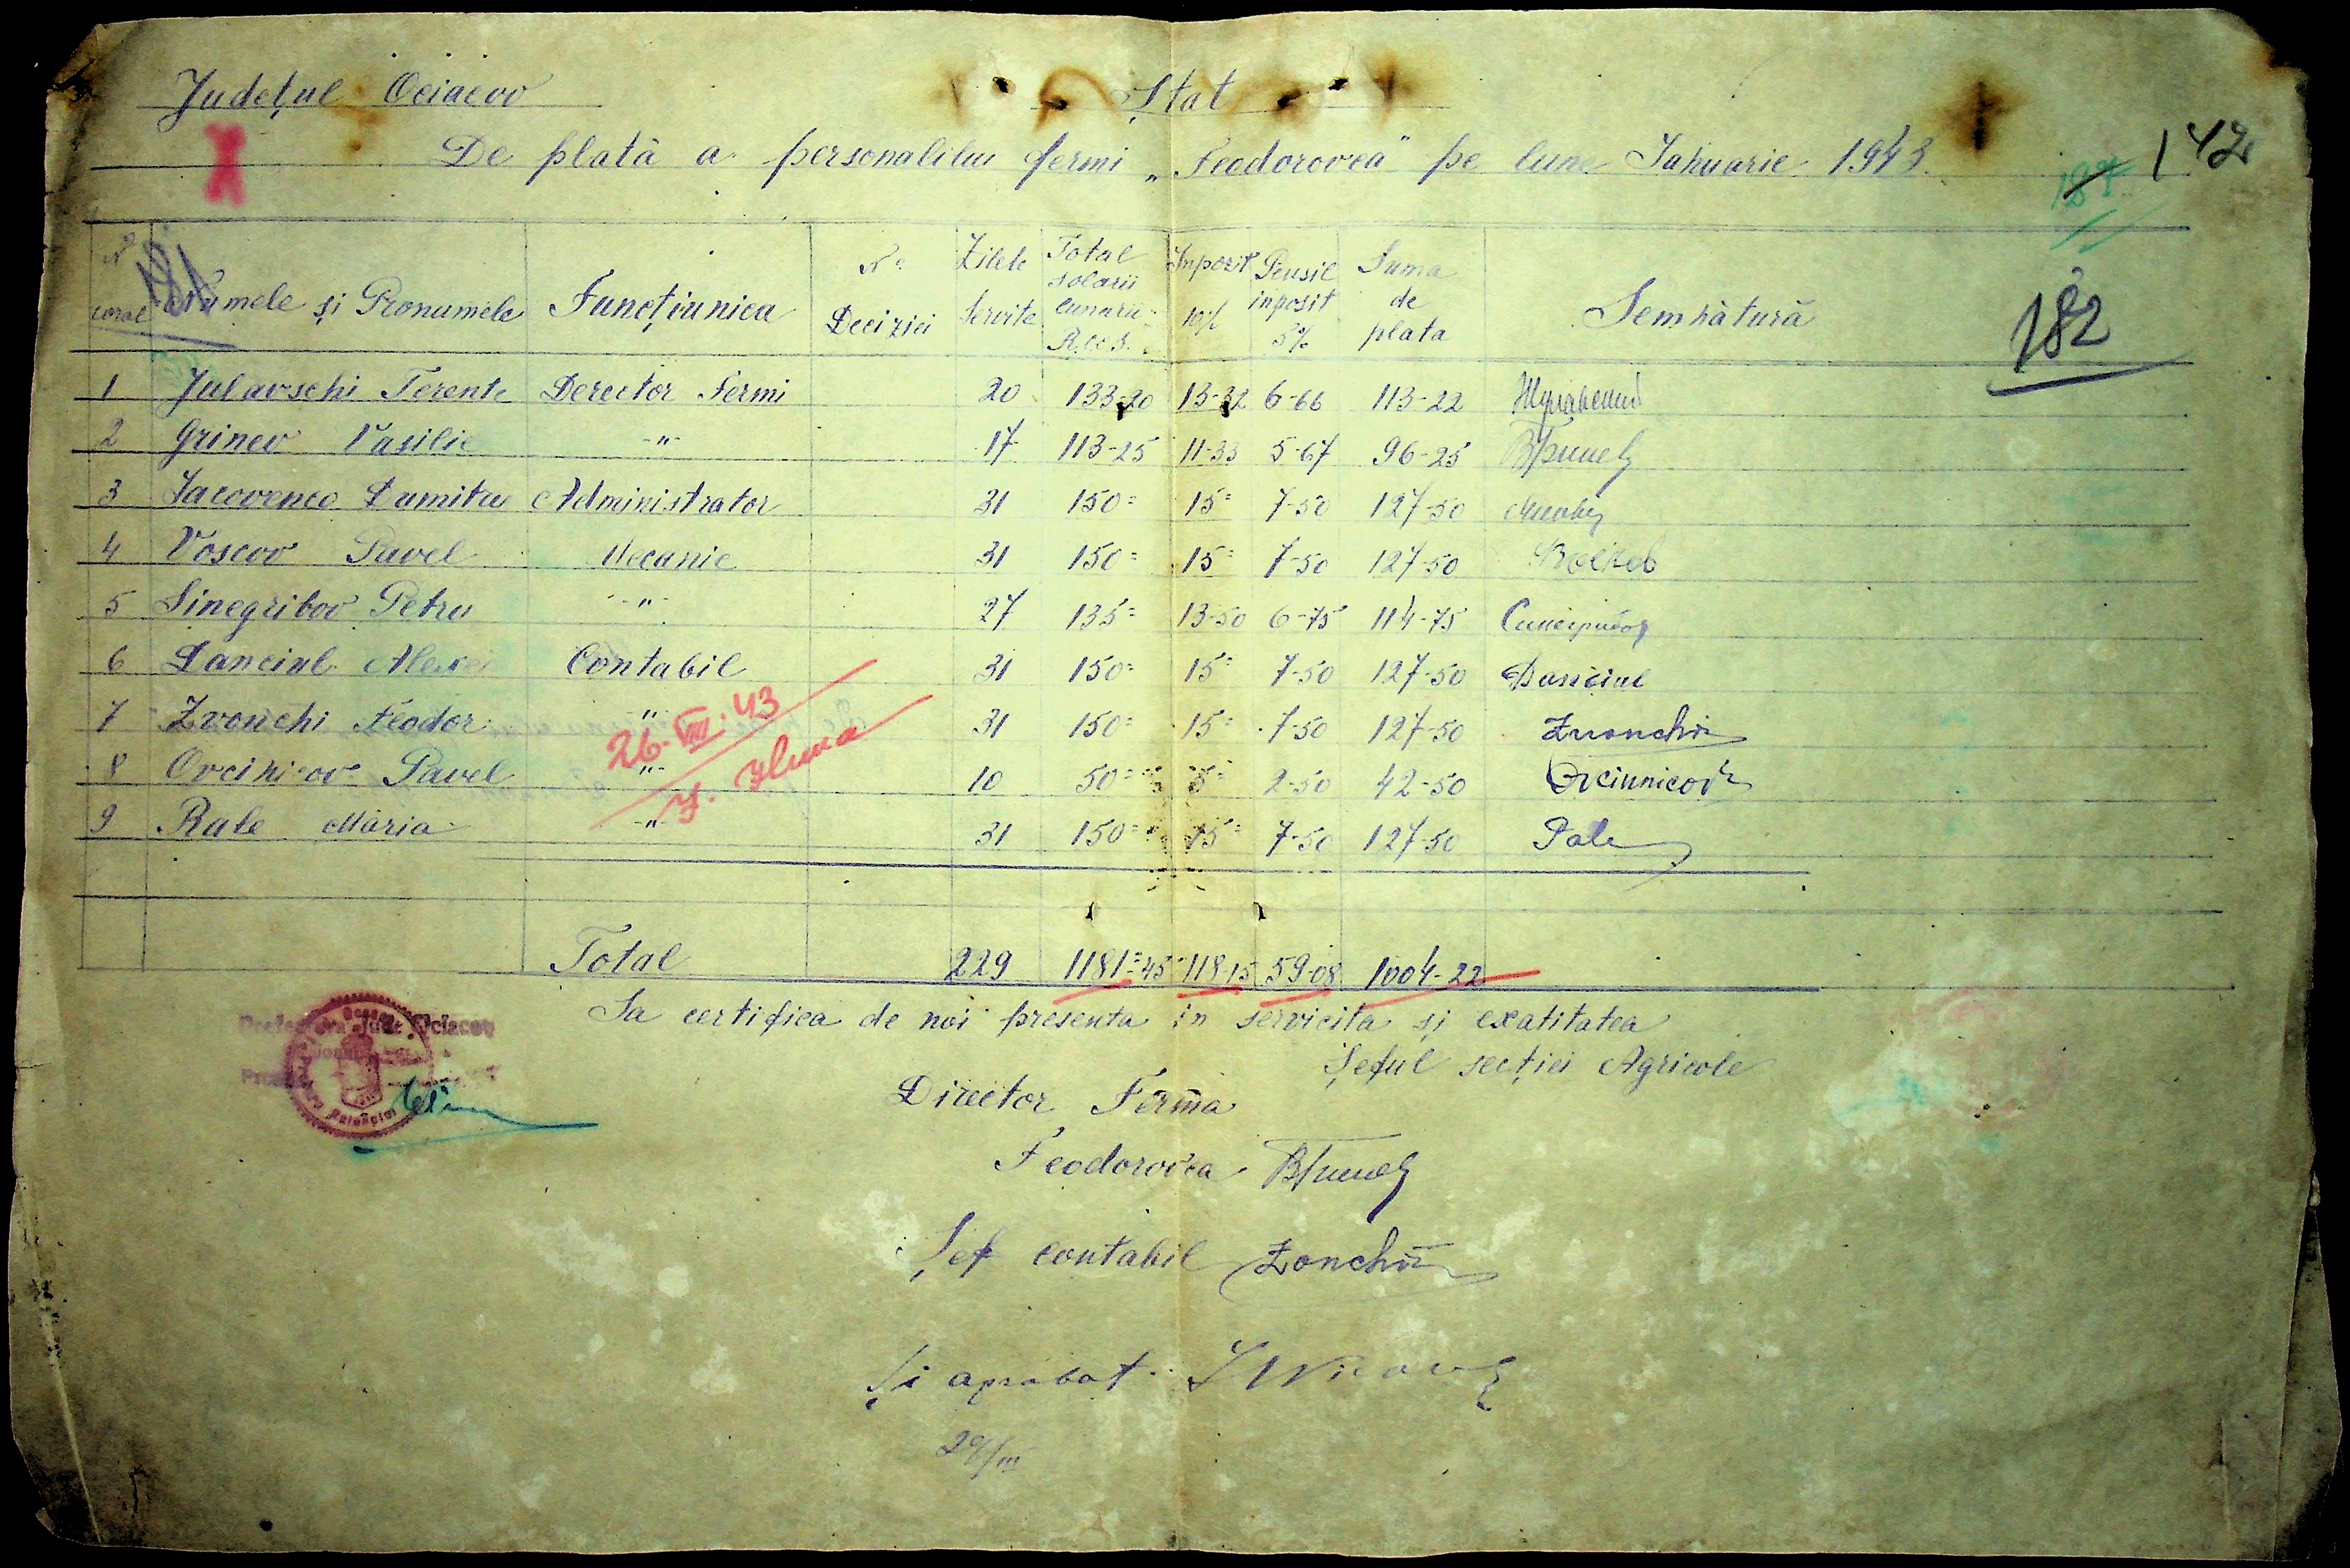 Județul Ociacov Ștat
De plată a personalilui fermi „Feodorovca" pe lune Ianuarie 1943.
142
182
Nº corse Numele și Pronumele Funcțiunica Nº Deciziei Zilele Servite Total solarii lunarii R.C.S. Inpozit 10% Pensil inposit 5% Suma de plata Semnătură
1 Julavschi Terente Derector Fermi 20 133-20 13-32 6-66 113-22 Жулавский
2 Grinev Vasilie -"- 17 113-25 11-33 5-67 96-25 ВГринев
3 Iacovenco Dumitru Administrator 31 150= 15= 7-50 127-50
4 Voscov Pavel Mecanic 31 150= 15= 7-50 127-50
5 Sinegribov Petru -"- 27 135= 13-50 6-75 114-75 Синегрибов
6 Danciul Alexei Contabil 31 150= 15= 7-50 127-50 Danciul
7 Zvonchi Feodor -"- 31 150= 15= 7-50 127-50 Zvonchi
8 Ovcinicov Pavel -"- 10 50= 5= 2-50 42-50 Ovciunicov
9 Rale Maria -"- 31 150= 15= 7-50 127-50 Rale
26.VIII.43
Total 229 1181=45 118-15 59-08 1004-22
Sa certifica de noi presenta in servicita și exatitatea
Șeful secției Agricole
Prefectura Jud. Ociacov
Director Ferma
Feodorovca ВГринев
Șef contabil Zonchi
Și aprobat
29/III